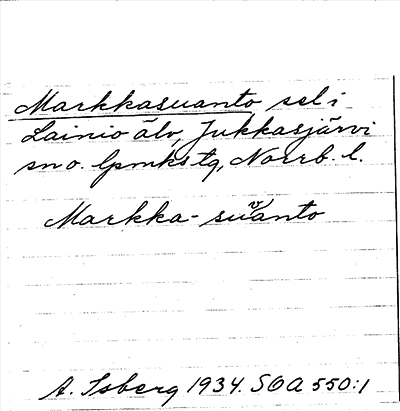 Markkasuanto sel i
Lainio älv, Jukkasjärvi
sn o. lpmks tg, Norrb. l.
Markka-suu͕anto
A. Isberg 1934. SOA 550:1